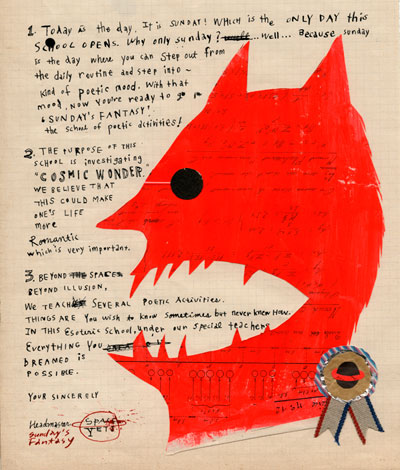 1. Today is the day. It is SUNDAY! WHICH is the ONLY DAY this
SCHOOL OPENS. Why only sunday? ... Well... Because sunday
is the day where you can step out from
the daily routine and step into ~
kind of poetic mood. With that
mood, NOW you're ready to go
SUNDAY'S FANTASY!
the school of poetic activities!
2. THE PURPOSE OF THIS
SCHOOL is investigating
"COSMIC WONDER."
WE BELIEVE THAT
THIS COULD MAKE
ONE'S LIFE
more
Romantic
which is very important.
3. BEYOND SPACE
BEYOND ILLUSION,
We TEACH SEVERAL POETIC Activities.
THINGS ARE YOU wish to know sometimes but never knew How.
IN THIS Esoteric School, under our special teachers
EVERYTHING YOU
DREAMED is
POSSIBLE.
YOUR SINCERELY
Headmaster SPACE
YETI
Sunday's
Fantasy